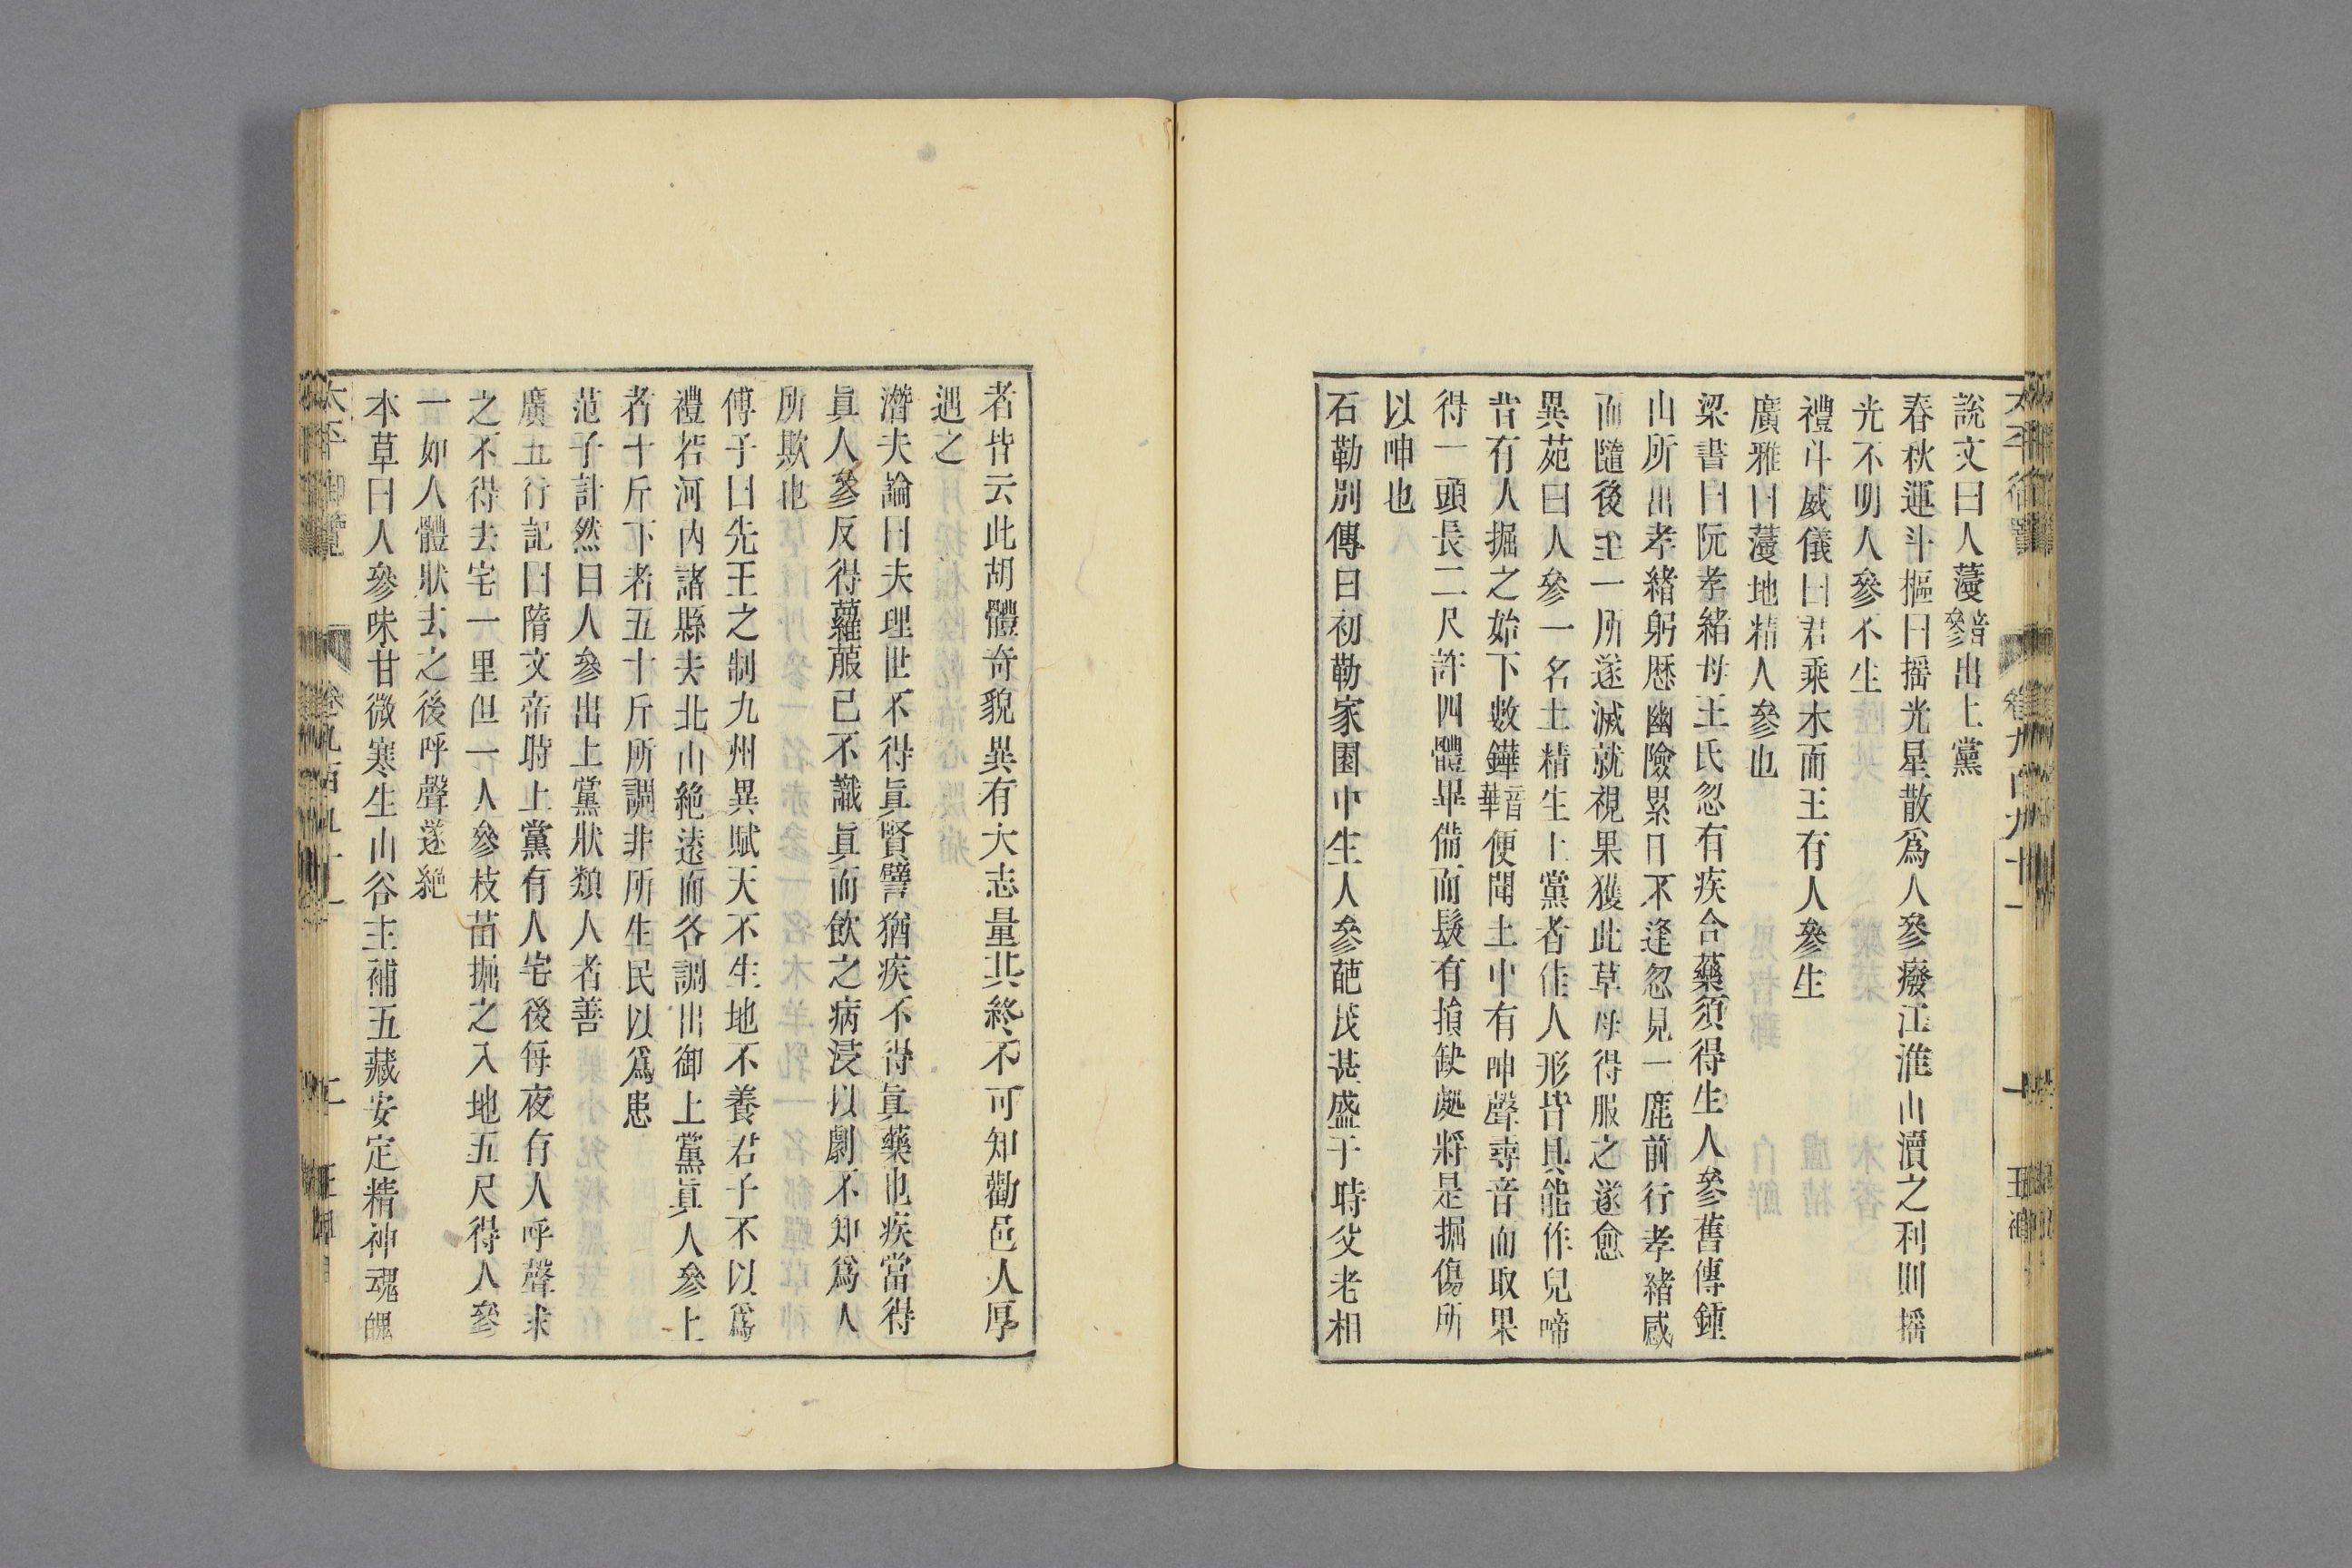 太平御覽 卷九百九十一 十 王
說文曰人薓音參出上黨
春秋運斗樞曰摇光星散爲人參癈江淮山瀆之利則摇
光不明人參不生
禮斗威儀曰君乘木而王有人參生
廣雅曰薓地精人參也
梁書曰阮孝緒母王氏忽有疾合藥須得生人參舊傳鍾
山所出孝緒躬歷幽險累日不逢忽見一鹿前行孝緒感
而隨後至一所遂滅就視果獲此草母得服之遂愈
異苑曰人參一名土精生上黨者佳人形皆具能作兒啼
昔有人掘之始下數鏵音華便聞土中有呻聲尋音而取果
得一頭長二尺許四體畢備而髮有損缺處將是掘傷所
以呻也
石勒別傳曰初勒家園中生人參葩茂甚盛于時父老相
者皆云此胡體奇貌異有大志量其終不可知勸邑人厚
遇之
潛夫論曰夫理世不得眞賢譬猶疾不得眞藥也疾當得
眞人參反得蘿菔已不識眞而飲之病浸以劇不知爲人
所欺也
傅子曰先王之制九州異賦天不生地不養君子不以爲
禮若河内諸縣去北山絶遠而各調出御上黨眞人參上
者十斤下者五十斤所調非所生民以爲患
范子計然曰人參出上黨狀類人者善
廣五行記曰隋文帝時上黨有人宅後每夜有人呼聲求
之不得去宅一里但一人參枝苗掘之入地五尺得人參
一如人體狀去之後呼聲遂絶
本草曰人參味甘微寒生山谷主補五藏安定精神魂魄
太平御覽 卷九百九十一